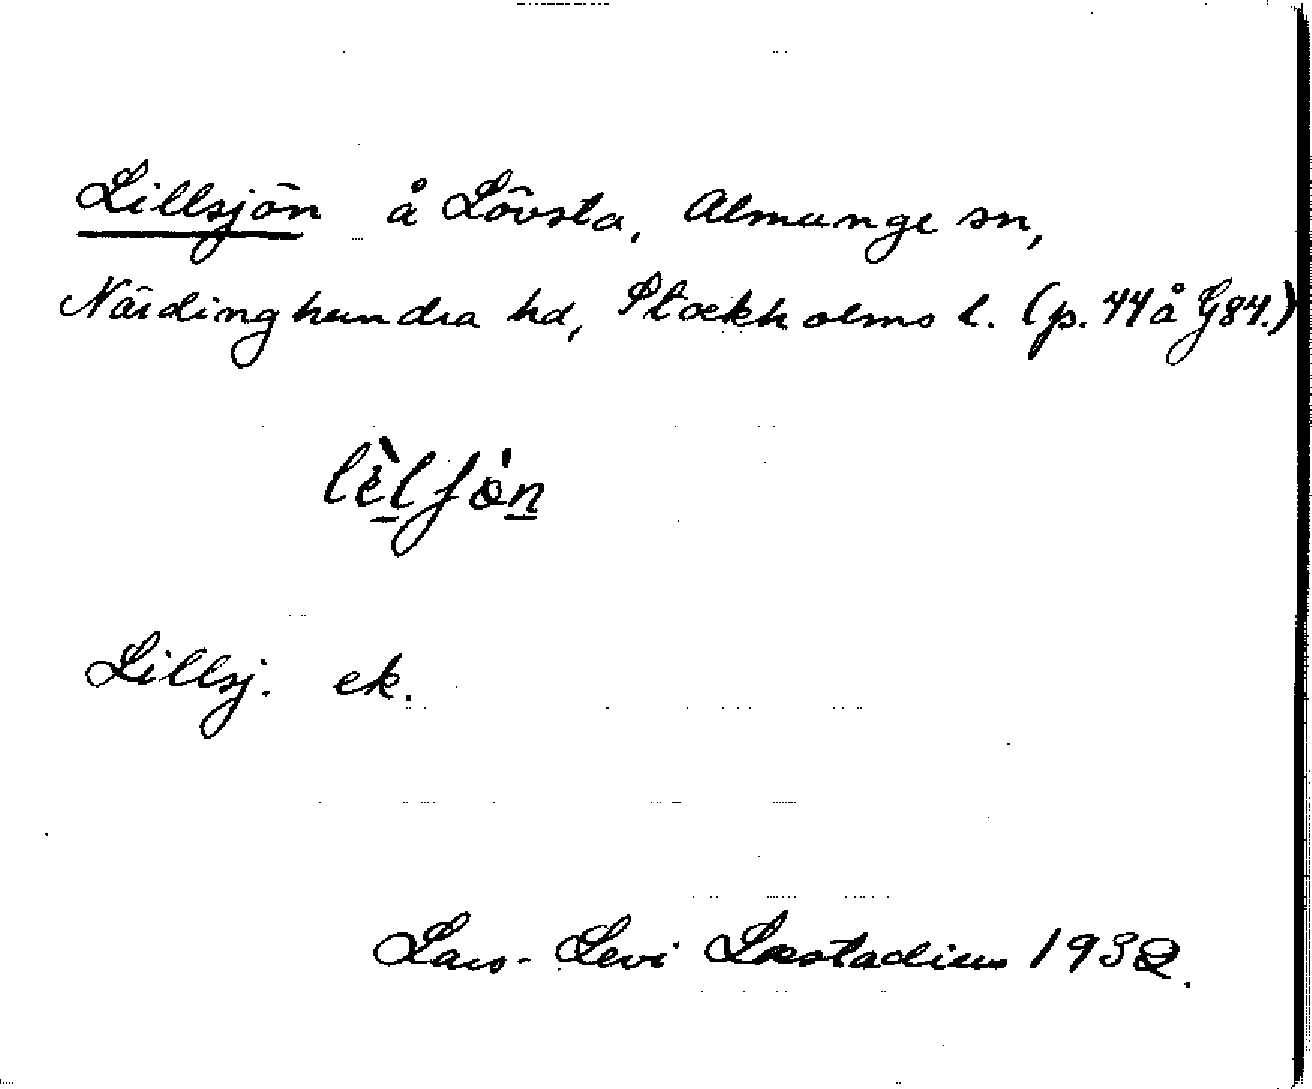 Lillsjön å Lövsta, Almunge sn,
Närdinghundra hd, Stockholms l. (p. 44 å G84.)
lèlʃòn
Lillsj. ek.
Lars-Levi Læstadius 1932.